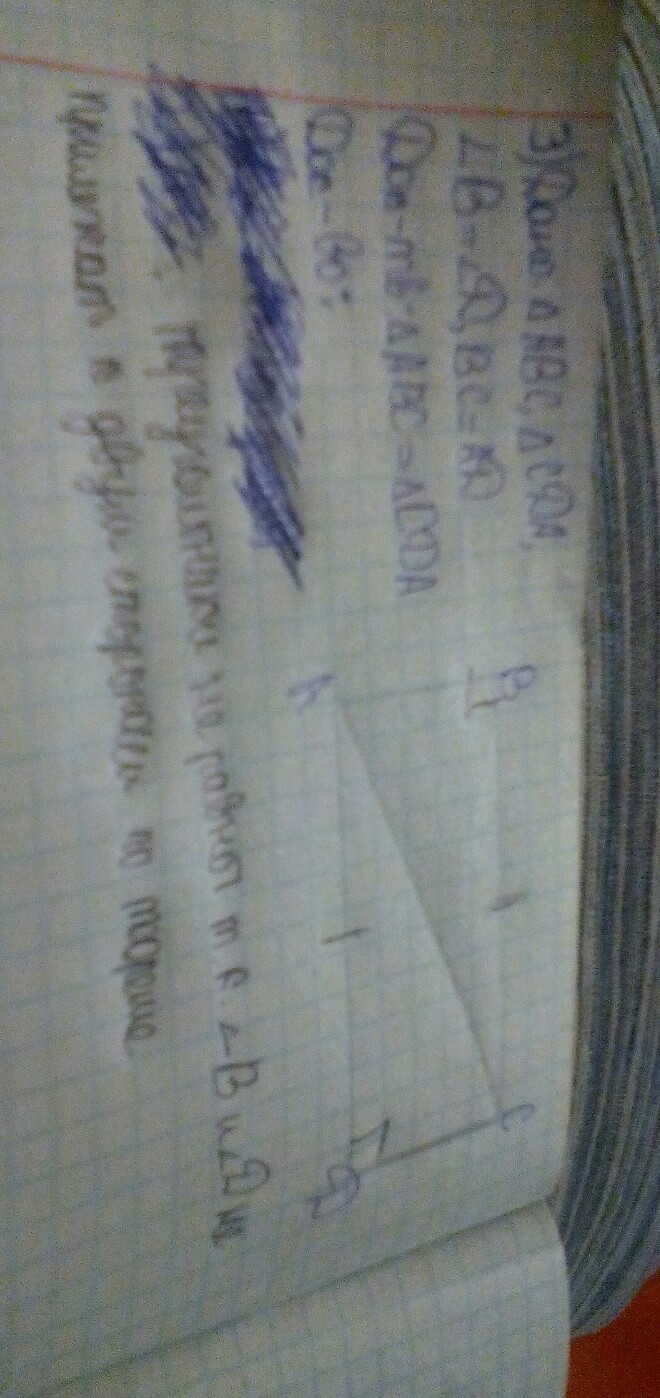 3) Дано: △ABC, △CDA,
∠B=∠D, BC=AD
Док-ть: △ABC=△CDA
Док-во:
треугольники не равны т к. ∠B и ∠D не
прилижат к двум сторонам по теореме
B
C
A
D